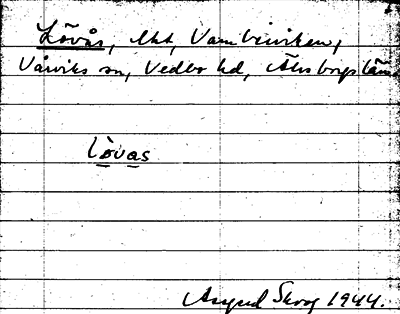 Lövås, lht, Vambeviken,
Vårviks sn, Vedbo hd, Älvsborgs län
lövas
Skoog 1944.